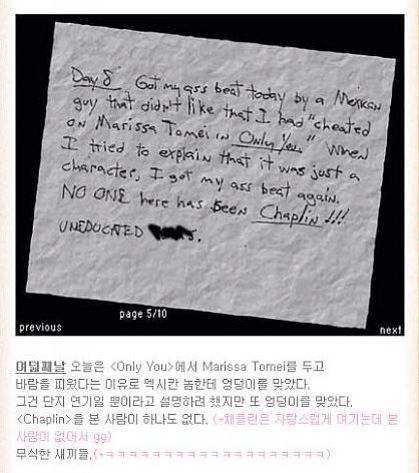 Day 8 Got my ass beat today by a Mexican
guy that didn't like that I had "cheated
on Marissa Tomei in Only You." When
I tried to explain that it was just a
character, I got my ass beat again.
NO ONE here has seen Chaplin!!!
UNEDUCATED
page 5/10
previous
next
여덟째날 오늘은 <Only You>에서 Marissa Tomei를 두고
바람을 피웠다는 이유로 멕시칸 놈한테 엉덩이를 맞았다.
그건 단지 연기일 뿐이라고 설명하려 했지만 또 엉덩이를 맞았다.
<Chaplin>을 본 사람이 하나도 없다. (+채플린은 자랑스럽게 여기는데 본
사람이 없어서 gg)
무식한 새끼들.(+ㅋㅋㅋㅋㅋㅋㅋㅋㅋㅋㅋㅋㅋㅋㅋㅋㅋㅋㅋ)